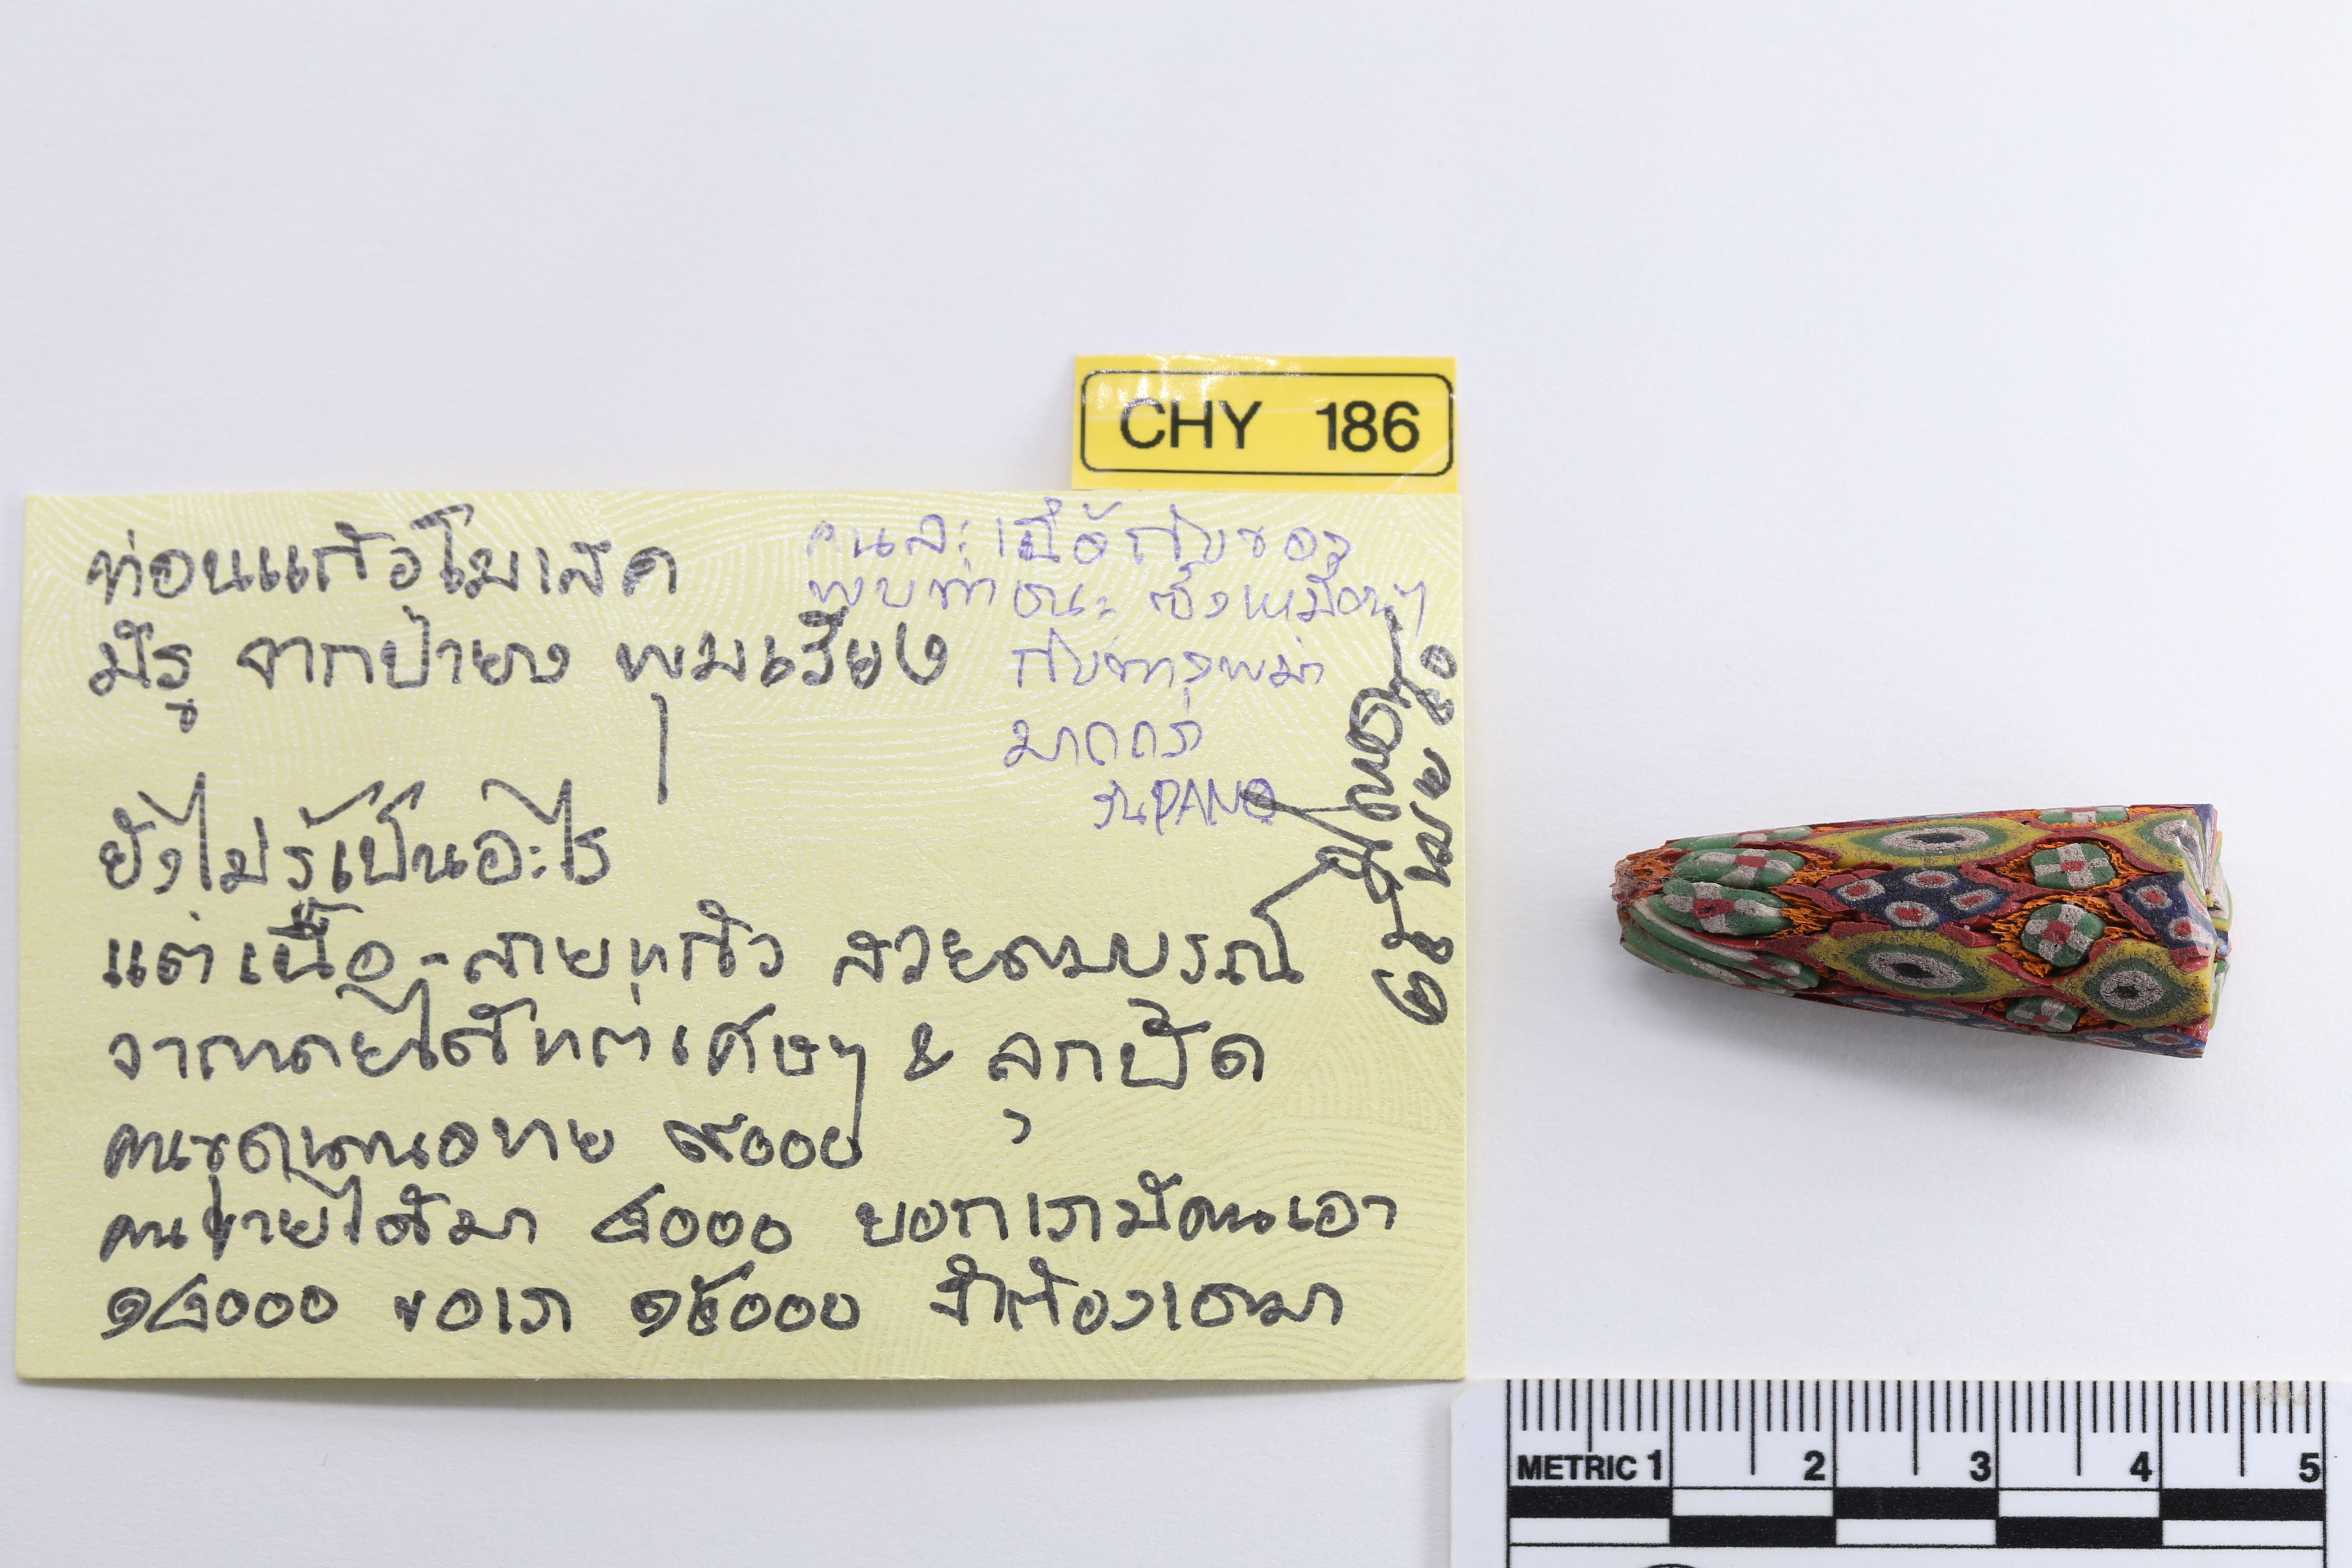 CHY 186
ท่อนแก้วโมเสค
มีรู จากป้ายาง พุมเรียง
ยังไม่รู้เป็นอะไร
แต่เนื้อ-ลายแก้ว สวยสมบูรณ์
จากเคยได้แต่เศษๆ & ลูกปัด
คนขุด ๙๐๐๐
คนขายได้มา ๘๐๐๐ บอกเรามีคนเอา
๑๘๐๐๐ ขอเรา ๑๕๐๐๐ จำต้องเอามา
คนละเนื้อกับของ
พบท่าชนะ ซึ่งเหมือนๆ
กับทางพม่า
มากกว่า
METRIC 1 2 3 4 5